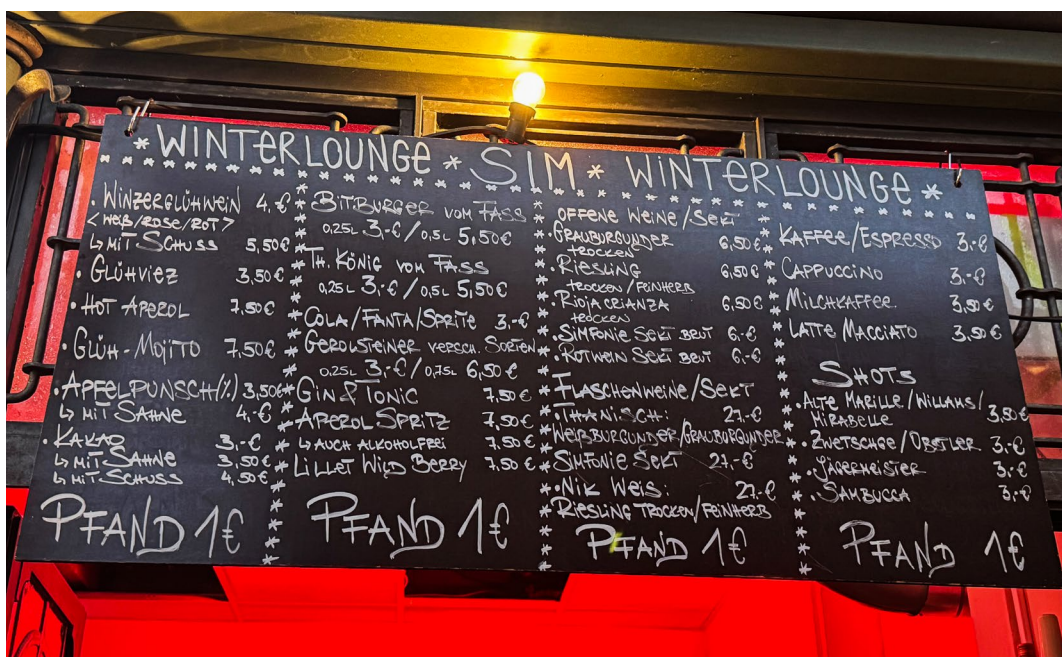 * WINTERLOUNGE * SIM * WINTERLOUNGE *
· WINZERGLÜHWEIN 4,-€
<WEIß/ROSE/ROT>
↳ MIT SCHUSS 5,50€
· GLÜHVIEZ 3,50€
· HOT APEROL 7,50€
· GLÜH-MOJITO 7,50€
· APFELPUNSCH(%) 3,50€
↳ MIT SAHNE 4,-€
· KAKAO 3,-€
↳ MIT SAHNE 3,50€
↳ MIT SCHUSS 4,50€
PFAND 1€
BITBURGER VOM FASS
0,25L 3,-€/0,5L 5,50€
TH. KÖNIG VOM FASS
0,25L 3,-€/0,5L 5,50€
COLA/FANTA/SPRITE 3,-€
GEROLSTEINER VERSCH. SORTEN
0,25L 3,-€/0,75L 6,50€
GIN & TONIC 7,50€
APEROL SPRITZ 7,50€
↳ AUCH ALKOHOLFREI 7,50€
LILLET WILD BERRY 7,50€
PFAND 1€
OFFENE WEINE/SEKT
· GRAUBURGUNDER 6,50€
TROCKEN
· RIESLING 6,50€
TROCKEN/FEINHERB
· RIOJA CRIANZA 6,50€
TROCKEN
· SIMFONIE SEKT BRUT 6,-€
· ROTWEIN SEKT BRUT 6,-€
FLASCHENWEINE/SEKT
· THANISCH: 27,-€
WEIßBURGUNDER/GRAUBURGUNDER
SIMFONIE SEKT 27,-€
· NIK WEIS: 27,-€
RIESLING TROCKEN/FEINHERB
PFAND 1€
KAFFEE/ESPRESSO 3,-€
CAPPUCCINO 3,-€
MILCHKAFFEE 3,50€
LATTE MACCIATO 3,50€
SHOTS
· ALTE MARILLE/WILLIAMS/
MIRABELLE 3,50€
· ZWETSCHGE/OBSTLER 3,-€
· JÄGERMEISTER 3,-€
· SAMBUCCA 3,-€
PFAND 1€